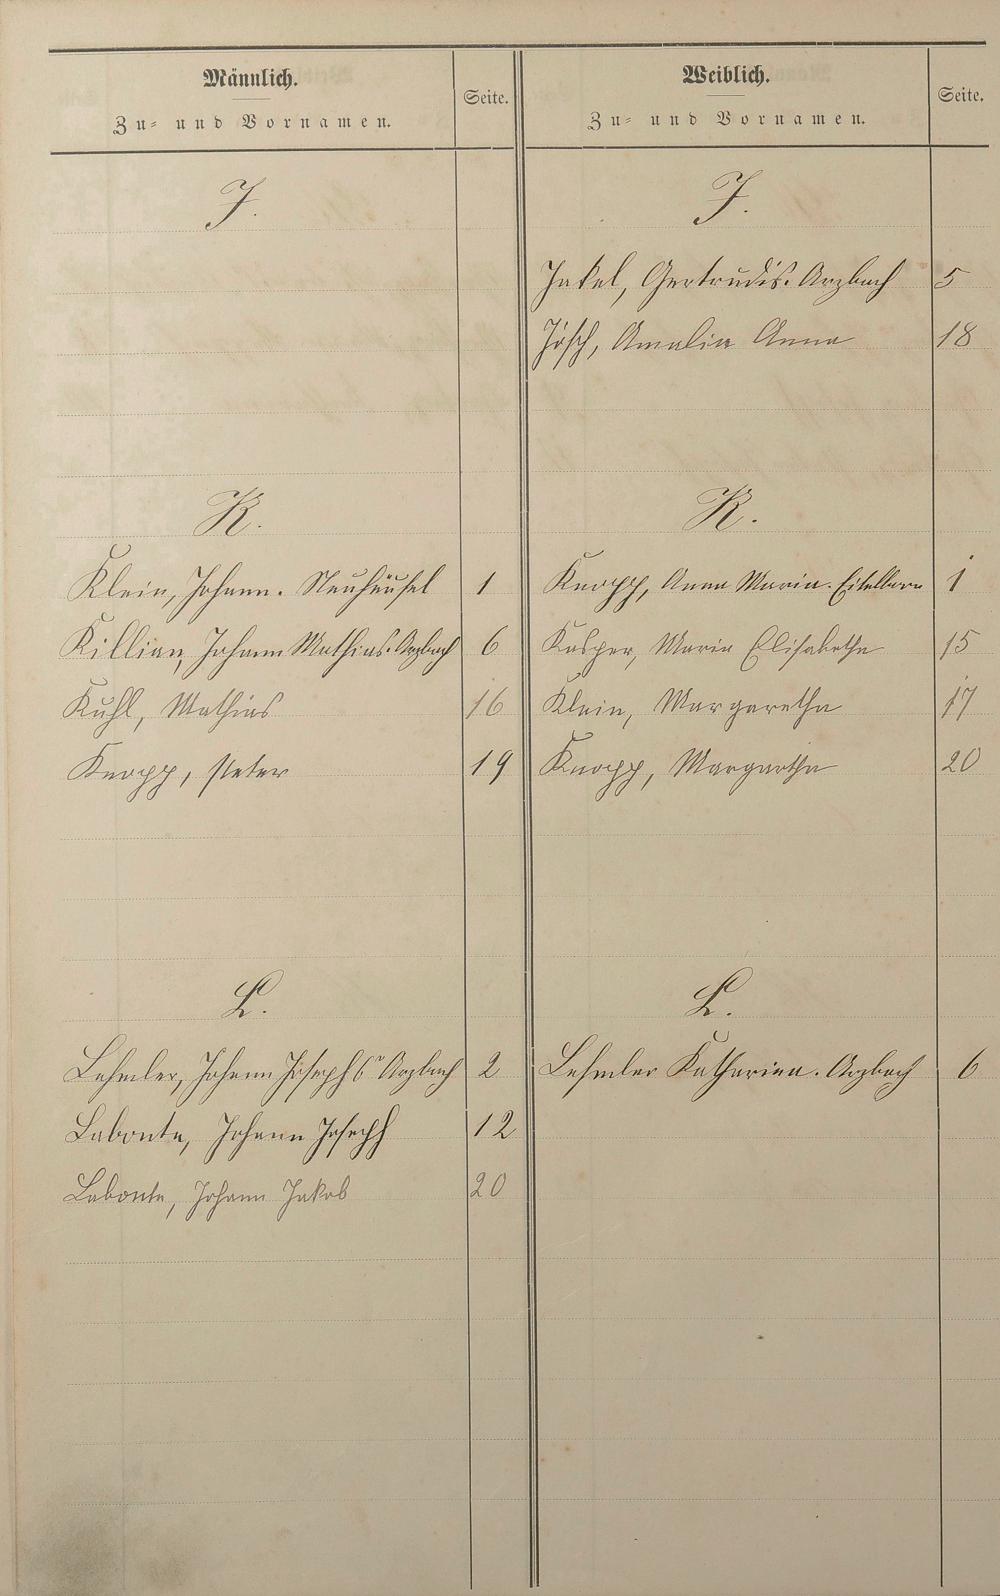 Männlich.
Zu- und Vornamen.
Seite.
J.
K.
Klein, Johann. Neuhäusel 1
Killian, Johann Mathias. Arzbach 6
Kuhl, Mathias 16
Knopp, Peter 19
L.
Lehmler, Johann Joseph 6r Arzbach 2
Labonte, Johann Joseph 12
Labonte, Johann Jakob 20
Weiblich.
Zu- und Vornamen.
Seite.
J.
Jakel, Gertrudis. Arzbach 5
Jösch, Amalia Anna 18
K.
Knopp, Anna Maria. Eitelborn 1
Kasper, Maria Elisabetha 15
Klein, Margaretha 17
Knopp, Margartha 20
L.
Lehmler Katharina. Arzbach 6